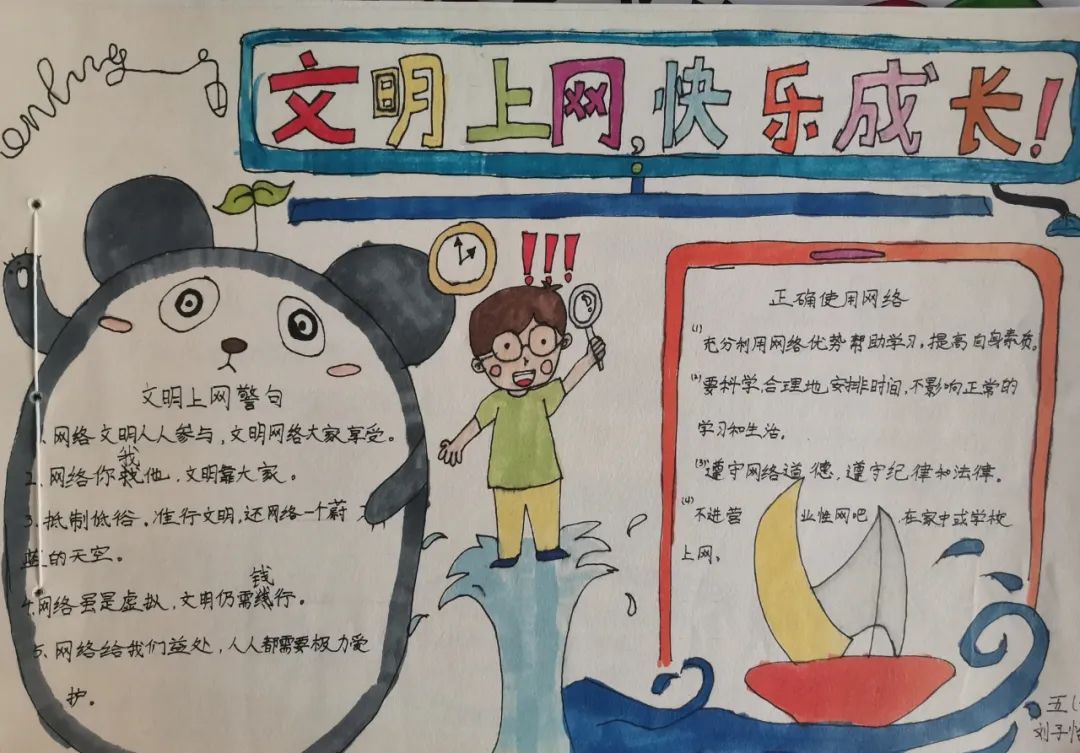 文明上网,快乐成长!
!!!
?
文明上网警句
1.网络文明人人参与,文明网络大家享受。
我
2.网络你我他,文明靠大家。
3.抵制低俗。准行文明,还网络一个蔚
蓝的天空。
钱
4.网络虽是虚拟,文明仍需线行。
5.网络给我们益处,人人都需要极力爱
护。
正确使用网络
(1)充分利用网络优势帮助学习,提高自身素质。
(2)要科学、合理地安排时间,不影响正常的
学习和生活。
(3)遵守网络道德,遵守纪律和法律。
(4)不进营业性网吧,在家中或学校
上网。
五(
刘子怡